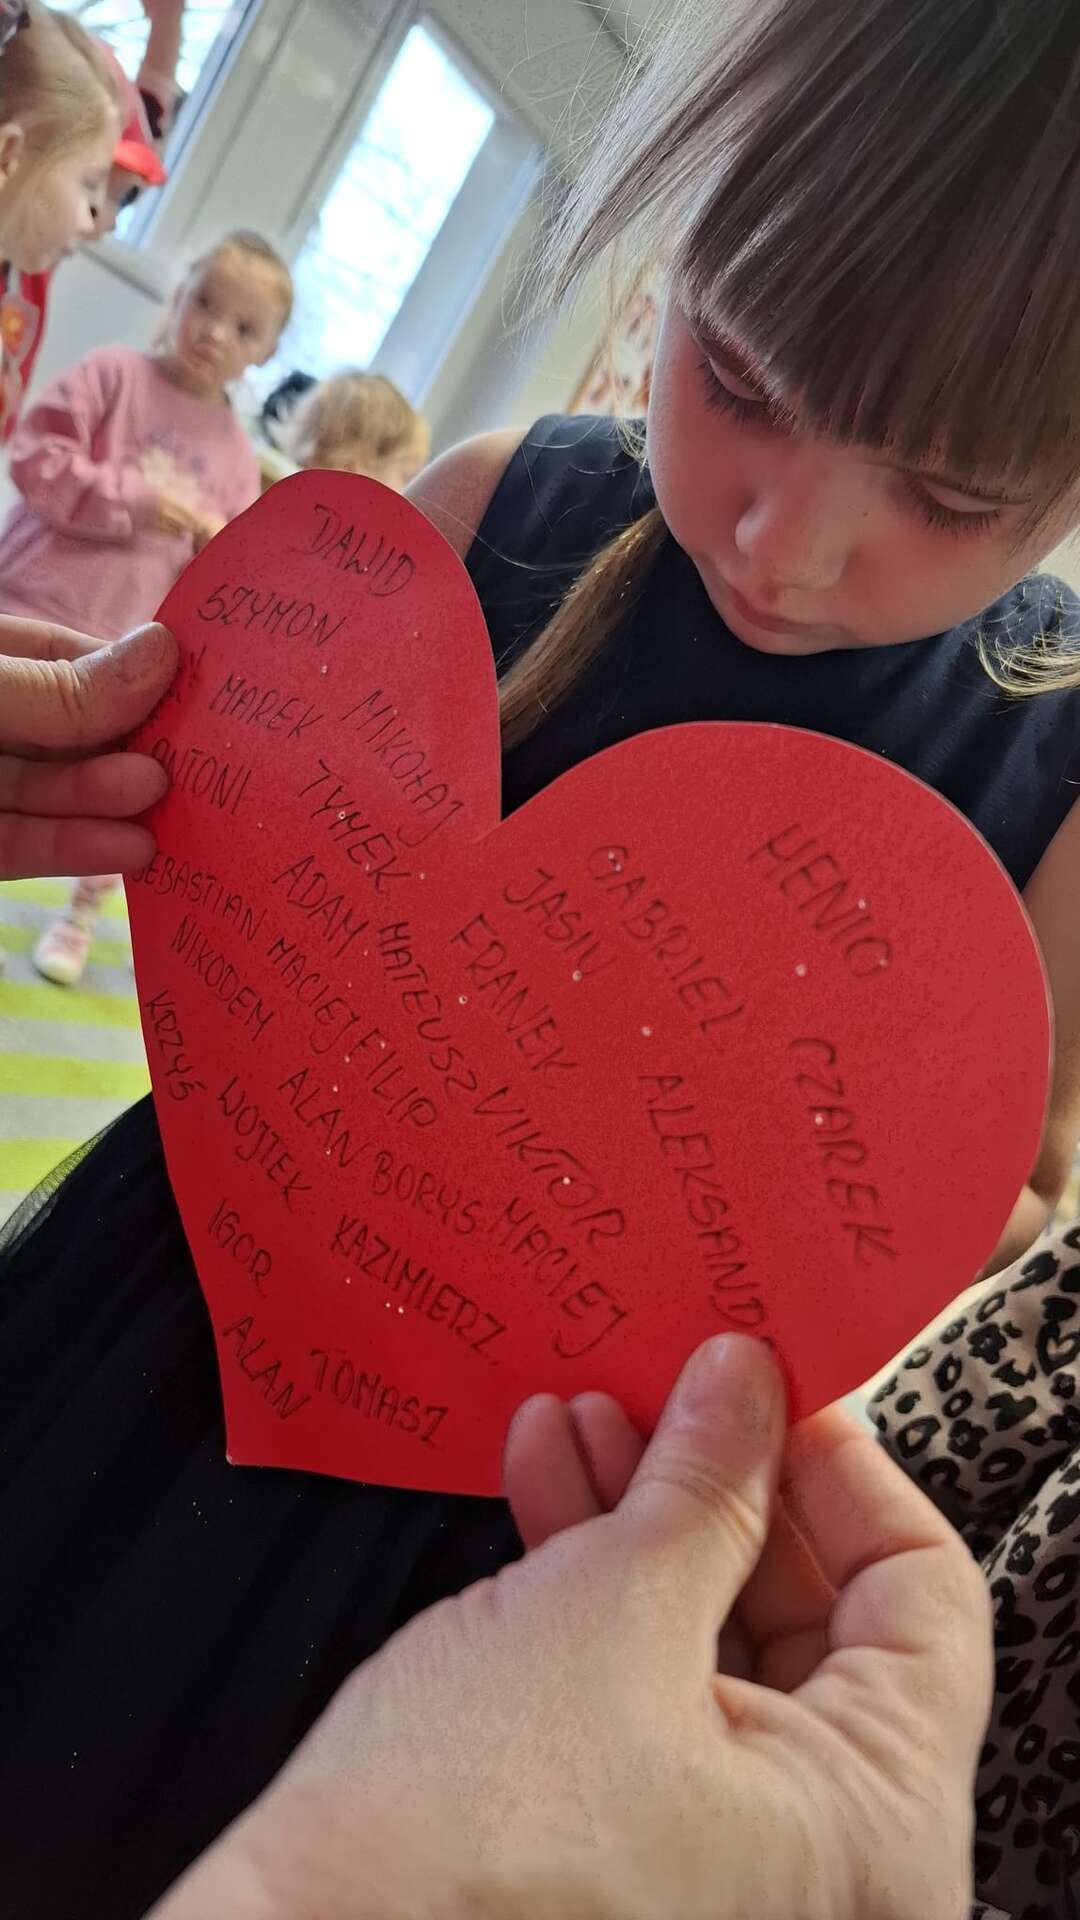 DAWID
SZYMON
MAREK MIKOŁAJ
ANTONI TYMEK
SEBASTIAN ADAM MATEUSZ WIKTOR
NIKODEM MACIEJ FILIP
KRZYŚ ALAN BORYS MACIEJ
WOJTEK KAZIMIERZ
IGOR
ALAN TOMASZ
HENIO
GABRIEL CZAREK
JASIU ALEKSAND
FRANEK